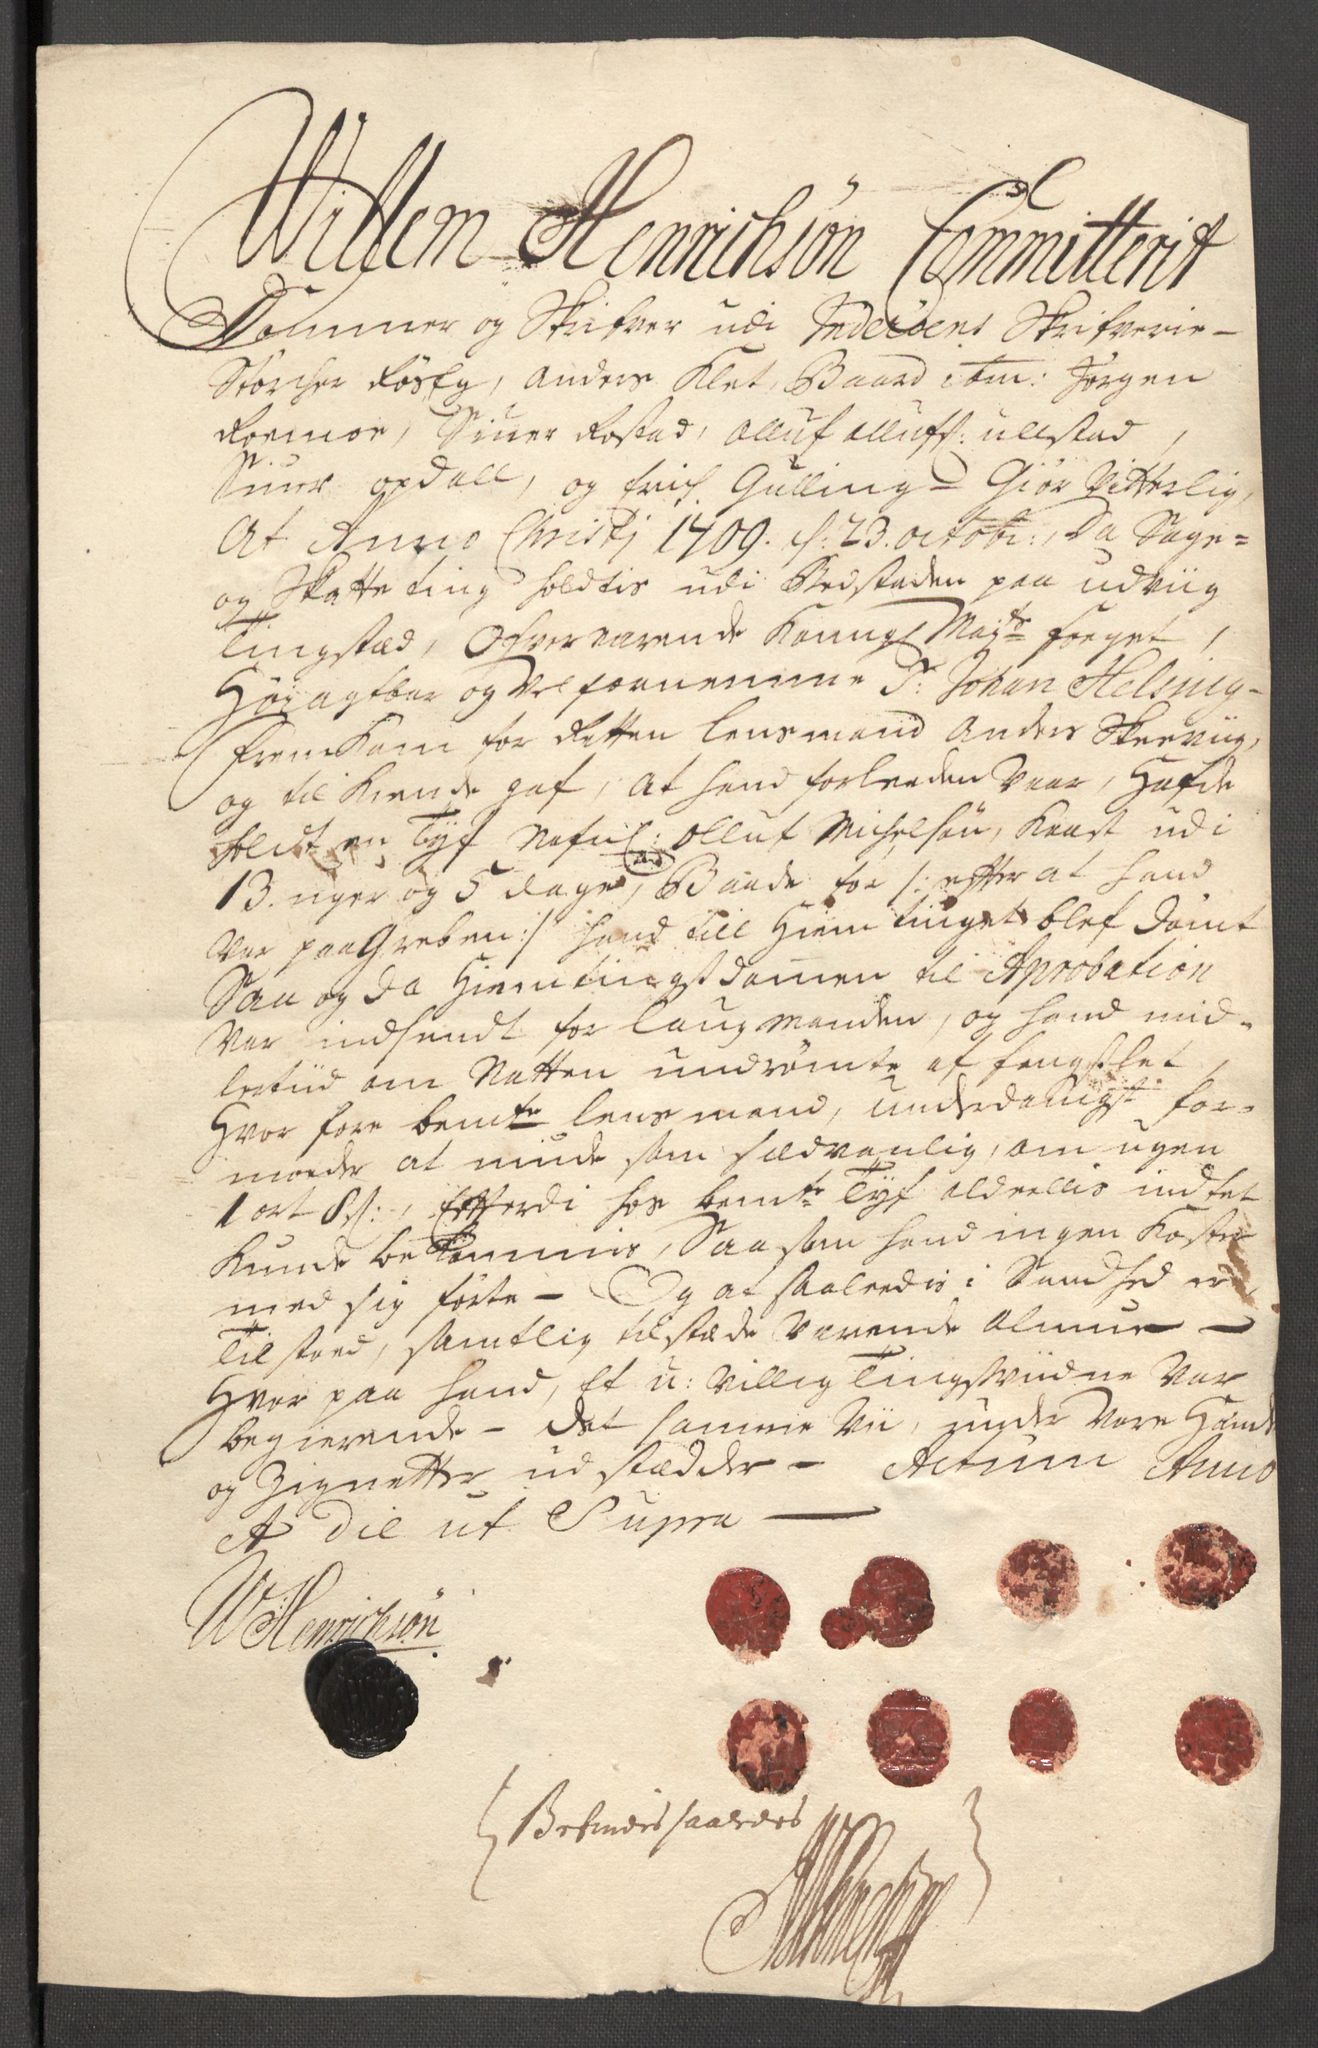 Willem Henrichsön Committerit
Dommer og Skrifver udi Inderöens Skrifverie -
Storcher Røseg, Anders Klet, Baard ibm: Jörgen
Roemoe, Siuer Rostad, Olluf Ollufs: ullstad,
Siuer opdall, og Erich Gulling - Giör Vitterlig,
At Anno Christj 1709. d: 23. octobr:, da Sage=
og Skatte ting holdtis udi Bedstaden paa udviig
Tingstæd, Ofverværende Kongl Mayts foeget,
Höyagtbar og Velfornemme Sr: Johan Helsing -
fremKom for Retten lensmand Anders Skeeviig,
og til Kiende gaf, at hand forleeden Vaar, Hafde
holdt en Tyf Nafnl: Olluf Michelsön, Kaast udi
13. uger og 5 dage, Baade for /: efter at hand
Var paaGreben :/ hand till Hiemtinget blef dömt
Saa og da Hiemtingsdommen til Aprobation
Var indsendt for laugmanden, og hand mid-
lertiid om Natten undrömte af fengslet,
Hvor fore bemte lensmand, underdanigst for-
moder at niude som sædvanlig, om ugen
1 ort 8 s:, Efterdi hos bemte Tyf aldeelis indtet
Kunde beKommis, Saasom hand ingen Kaast
med sig förte - Og at saaleedis i Sandhed er
Tilstoed, samtlig tilstæde Værende Almue -
Hvor paa hand, Et u: Villig Tingsvidne Var
begierende - det samme Vii, under Vore Hænder
og Zignetter udstædder - Actum Anno
& Die ut Supra -
WHenrichsön
Befindes saaledes